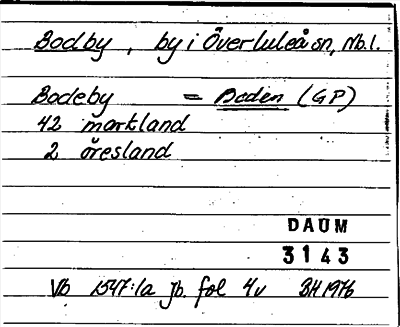 Bodby, by i Överluleå sn, Nb.l.
Bodeby = Boden (GP)
42 markland
2 öresland
DAUM
3143
Vb 1547:1a Jb. fol 4v BH 1976